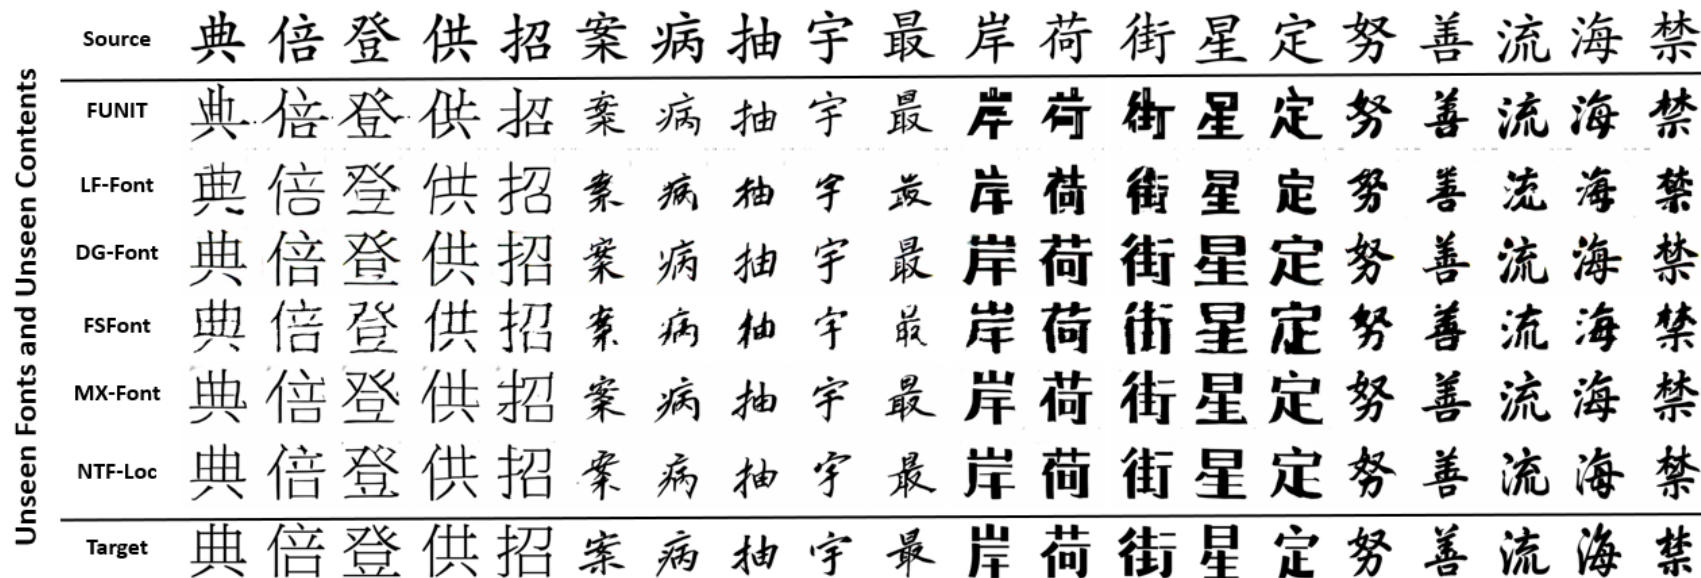 Unseen Fonts and Unseen Contents
Source 典 倍 登 供 招 案 病 抽 宇 最 岸 荷 街 星 定 努 善 流 海 禁
FUNIT 典 倍 登 供 招 案 病 抽 宇 最 岸 荷 街 星 定 努 善 流 海 禁
LF-Font 典 倍 登 供 招 案 病 抽 宇 最 岸 荷 街 星 定 努 善 流 海 禁
DG-Font 典 倍 登 供 招 案 病 抽 宇 最 岸 荷 街 星 定 努 善 流 海 禁
FSFont 典 倍 登 供 招 案 病 抽 宇 最 岸 荷 街 星 定 努 善 流 海 禁
MX-Font 典 倍 登 供 招 案 病 抽 宇 最 岸 荷 街 星 定 努 善 流 海 禁
NTF-Loc 典 倍 登 供 招 案 病 抽 宇 最 岸 荷 街 星 定 努 善 流 海 禁
Target 典 倍 登 供 招 案 病 抽 宇 最 岸 荷 街 星 定 努 善 流 海 禁